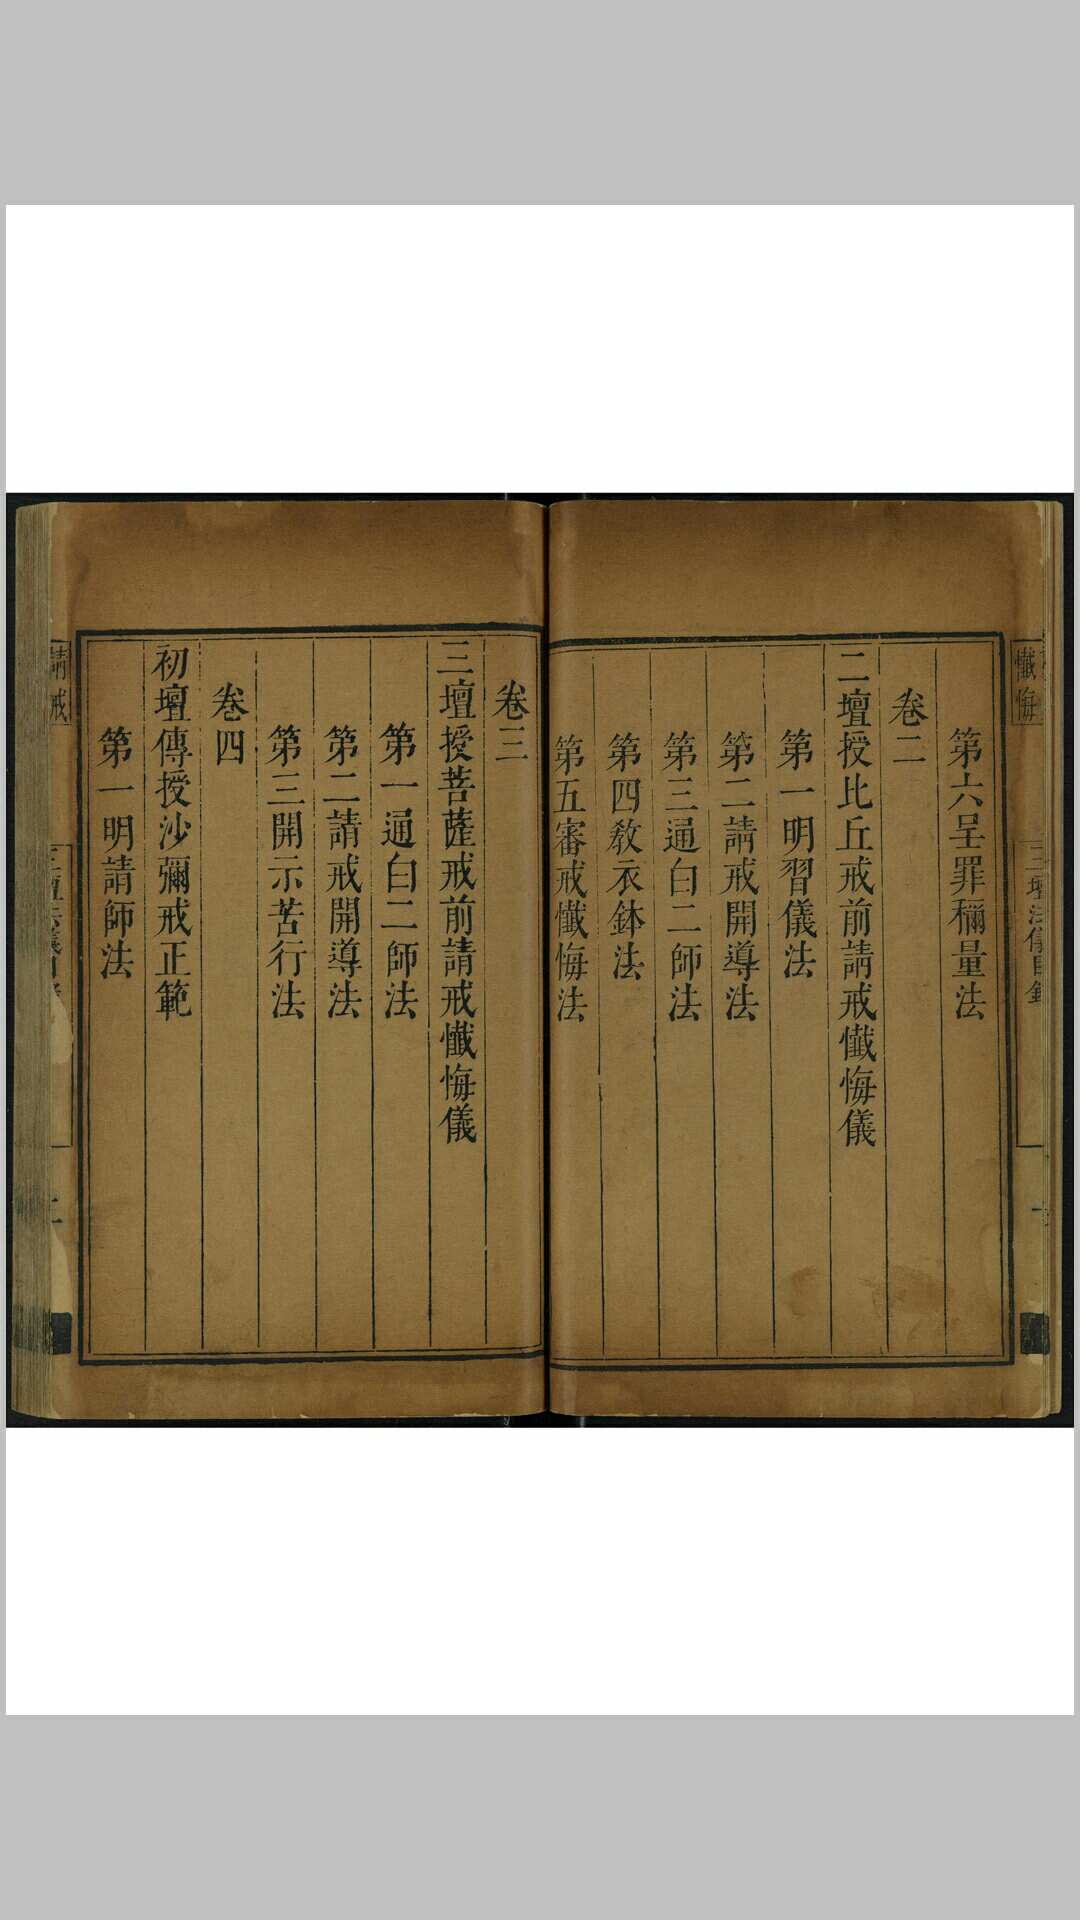 懺悔
三壇法儀目錄
第六呈罪稱量法
卷二
二壇授比丘戒前請戒懺悔儀
第一明習儀法
第二請戒開導法
第三通白二師法
第四教衣鉢法
第五審戒懺悔法
卷三
三壇授菩薩戒前請戒懺悔儀
第一通白二師法
第二請戒開導法
第三開示苦行法
卷四
初壇傳授沙彌戒正範
第一明請師法
請戒
二